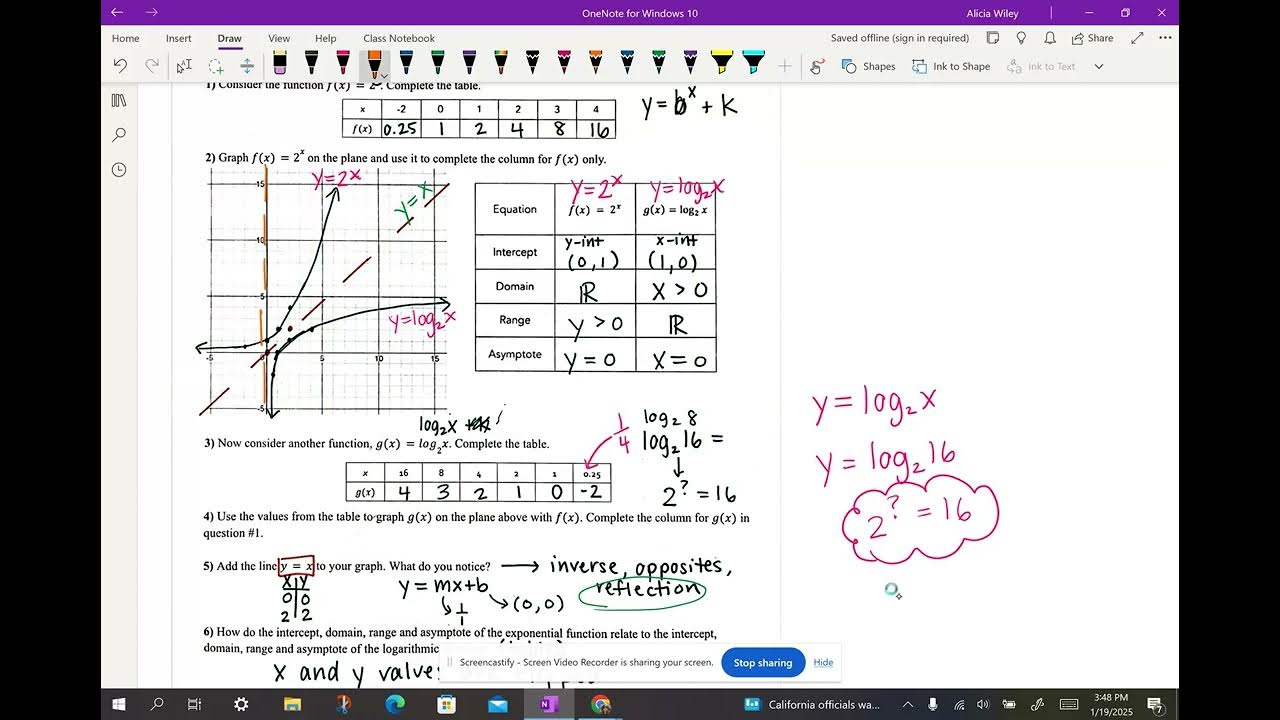 OneNote for Windows 10
Alicia Wiley
Home Insert Draw View Help Class Notebook
Saved offline (sign in required) Share
Shapes Ink to Shape Ink to Text
1) Consider the function f(x) = 2ˣ. Complete the table.
x -2 0 1 2 3 4
f(x) 0.25 1 2 4 8 16
y = bˣ + k
2) Graph f(x) = 2ˣ on the plane and use it to complete the column for f(x) only.
y=2ˣ
y=x
15
10
5
y=log₂x
-5 5 10 15
-5
y=2ˣ y=log₂x
Equation f(x) = 2ˣ g(x) = log₂ x
y-int x-int
Intercept (0,1) (1,0)
Domain ℝ x > 0
Range y > 0 ℝ
Asymptote y = 0 x = 0
log₂x
1/4
log₂ 8
log₂16 =
2^? = 16
3) Now consider another function, g(x) = log₂x. Complete the table.
x 16 8 4 2 1 0.25
g(x) 4 3 2 1 0 -2
4) Use the values from the table to graph g(x) on the plane above with f(x). Complete the column for g(x) in
question #1.
5) Add the line y = x to your graph. What do you notice? → inverse, opposites,
reflection
x y
0 0
2 2
y = mx+b
1/1
(0,0)
6) How do the intercept, domain, range and asymptote of the exponential function relate to the intercept,
domain, range and asymptote of the logarithmic
x and y value
y = log₂x
y = log₂16
2^? = 16
Screencastify - Screen Video Recorder is sharing your screen. Stop sharing Hide
California officials wa...
3:48 PM
1/19/2025